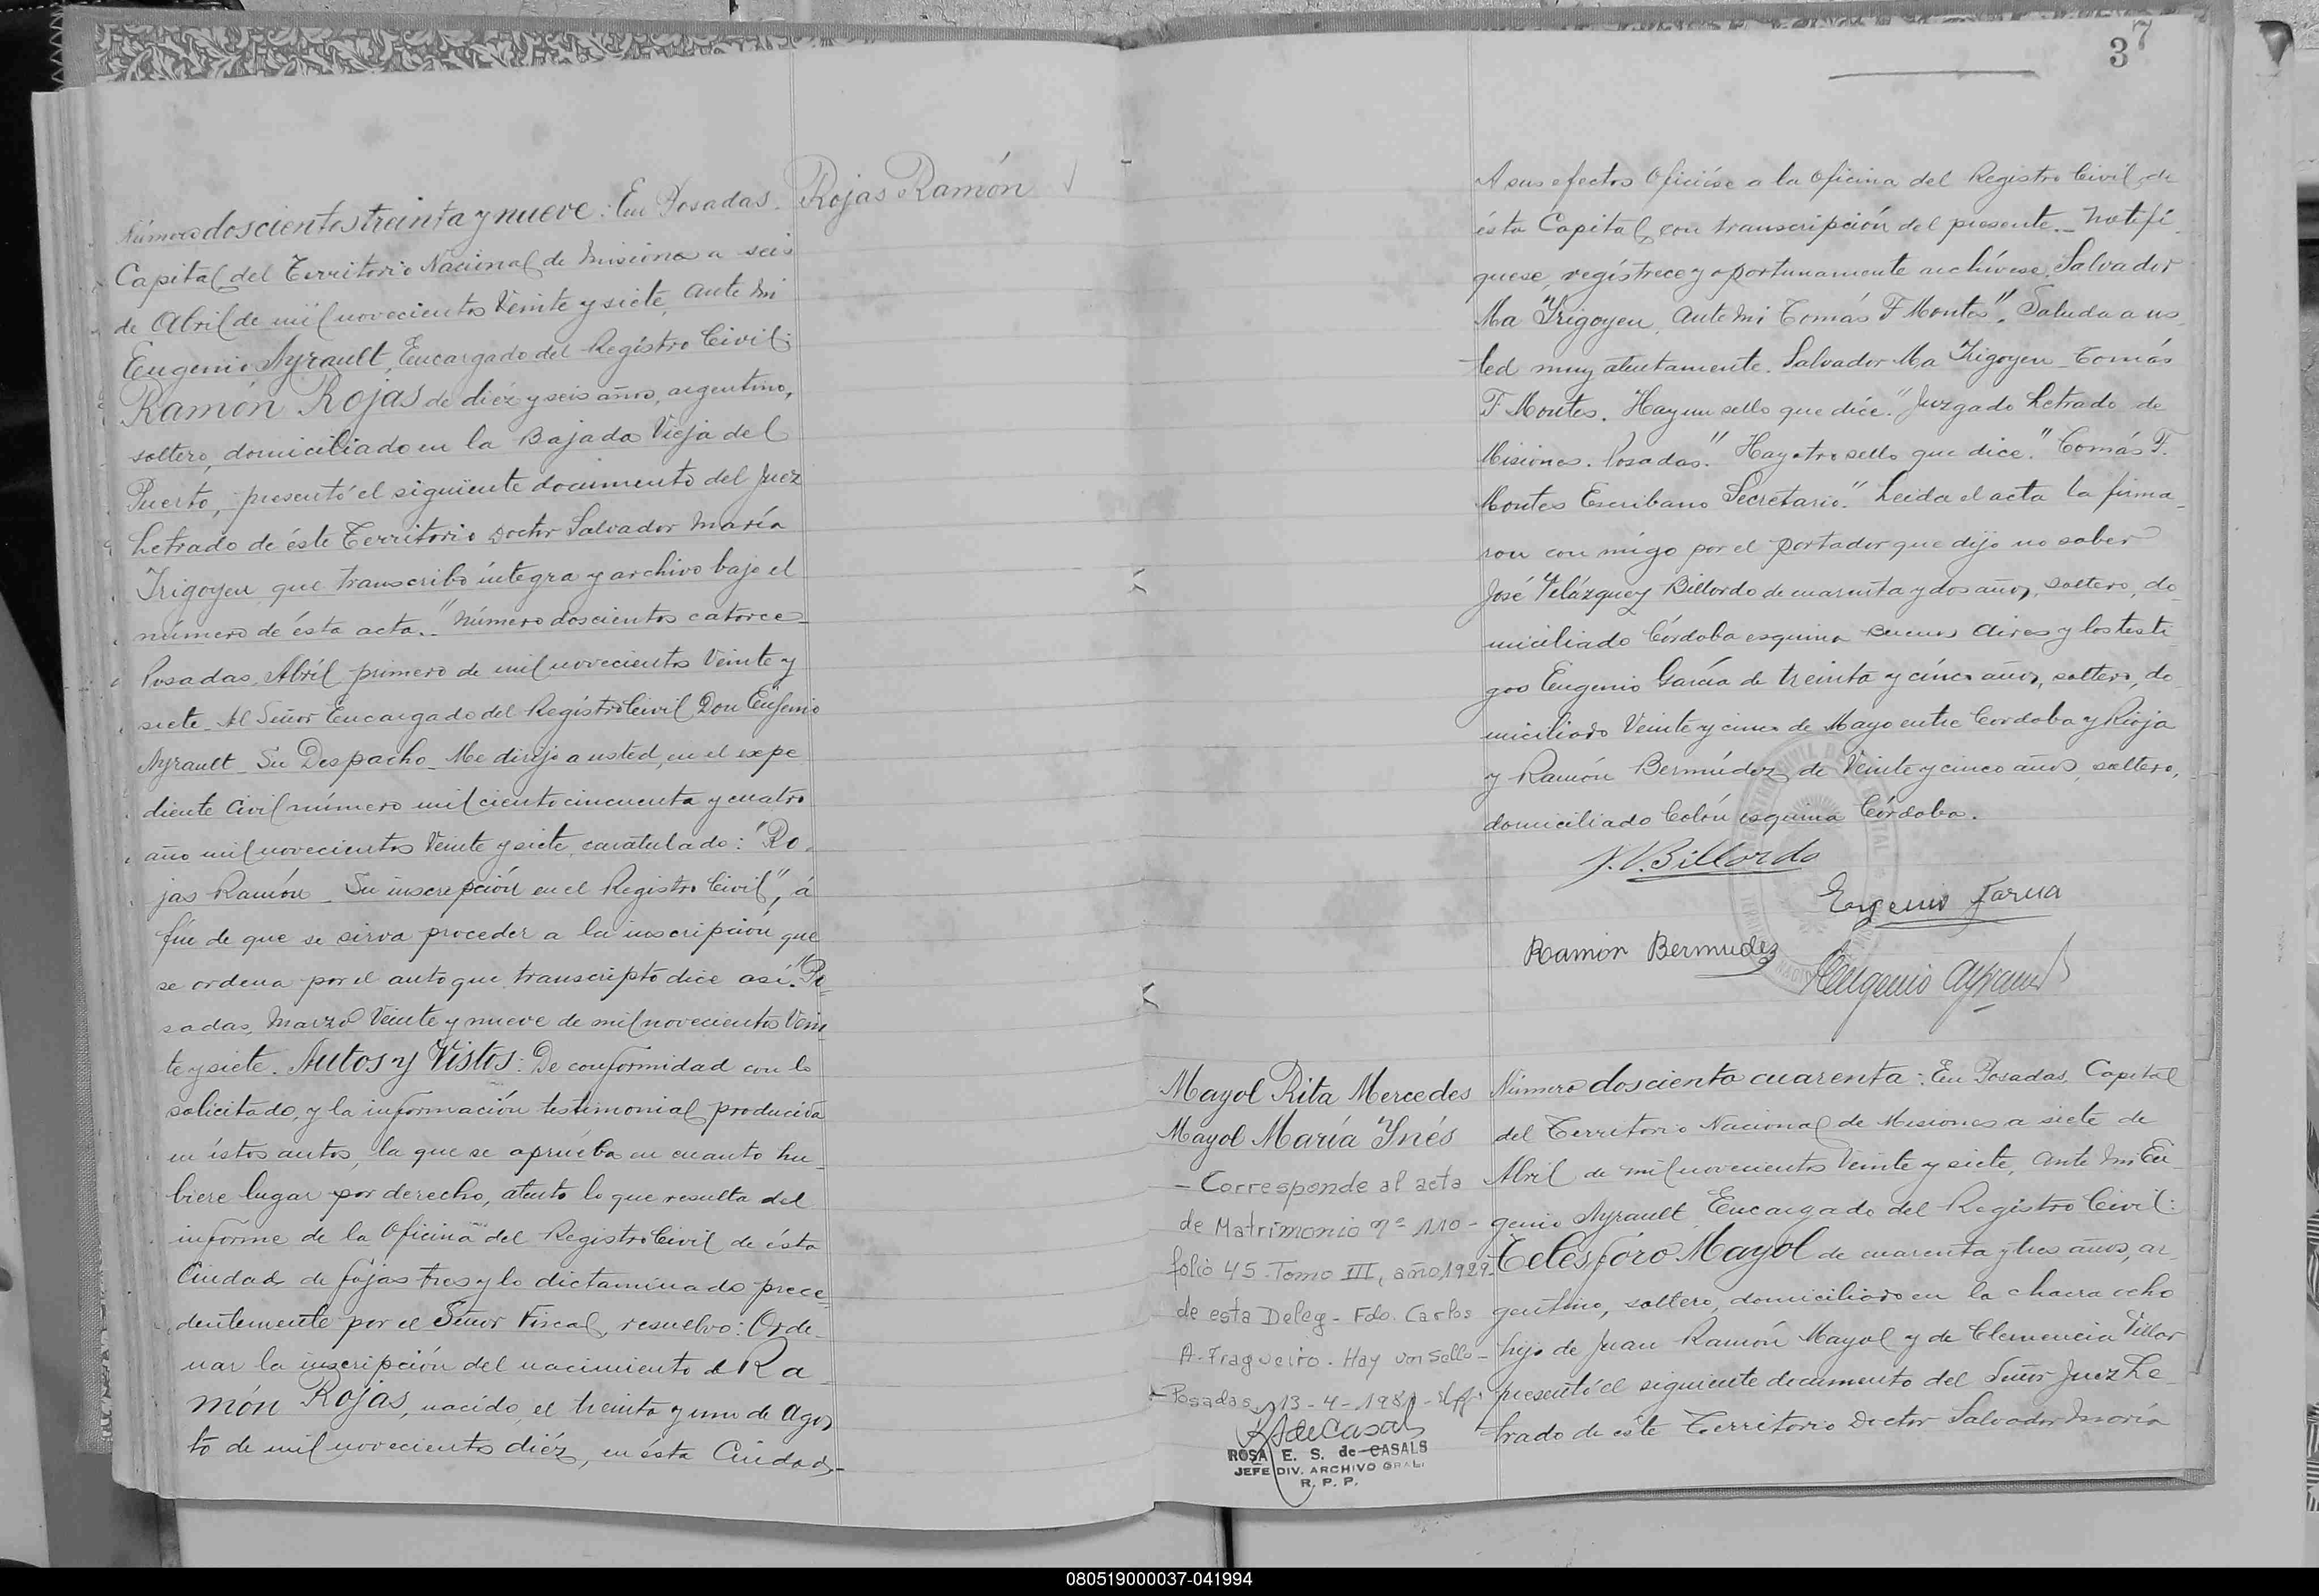 Rojas Ramón
Número doscientos treinta y nueve: En Posadas.
Capital del Territorio Nacional de Misiones a seis
de Abril de mil novecientos Veinte y siete, ante mi
Eugenio Ayrault, Encargado del Registro Civil:
Ramón Rojas de diéz y seis años, argentino,
soltero, domiciliado en la Bajada Vieja del
Puerto, presentó el siguiente documento del Juez
Letrado de éste Territorio Doctor Salvador María
Irigoyen que transcribo íntegra y archivo bajo el
número de ésta acta._ "Número doscientos catorce_
Posadas, Abril primero de mil novecientos Veinte y
siete_ Al Señor Encargado del Registro Civil Don Eugenio
Ayrault_ Su Despacho_ Me dirijo a usted, en el expe
diente Civil número mil ciento cincuenta y cuatro
año mil novecientos Veinte y siete, caratulado: "Ro.
jas Ramón_ Su inscripción en el Registro Civil", á
fín de que se sirva proceder a la inscripción que
se ordena por el auto que transcripto dice así. "Po_
sadas, Marzo Veinte y nueve de mil novecientos Vein
te y siete. Autos y Vistos: De conformidad con lo
solicitado, y la información testimonial producida
en éstos autos, la que se aprueba en cuanto hu_
biere lugar por derecho, atento lo que resulta del
informe de la Oficina del Registro Civil de ésta
Ciudad de fojas tres y lo dictaminado prece_
dentemente por el Señor Fiscal, resuelvo: Orde_
nar la inscripción del nacimiento de Ra_
món Rojas, nacido el treinta y uno de Agos
to de mil novecientos diéz, en ésta Ciudad._
37
A sus efectos Ofíciese a la Oficina del Registro Civil de
ésta Capital con transcripción del presente._ Notifí_
quese, regístrece y oportunamente archívese, Salvador
Ma Yrigoyen, Ante Mi Tomás F Montes". Saluda a us_
ted muy atentamente. Salvador Ma Irigoyen_ Tomás
F Montes. Hay un sello que dice. "Juzgado Letrado de
Misiones. Posadas." Hay otro sello que dice. "Tomás F.
Montes Escribano Secretario." Leida el acta la firma_
ron con migo por el portador que dijo no saber
José Velázquez Billordo de cuarenta y dos años, soltero, do_
miciliado Córdoba esquina Buenos Aires y los testi
gos Eugenio García de treinta y cinco años, soltero, do_
miciliado Veinte y cinco de Mayo entre Cordoba y Rioja
y Ramón Bermúdez de Veinte y cinco años, soltero,
domiciliado Colón esquina Córdoba.
J. V. Billordo
Eugenio Garcia
Ramón Bermudez
Eugenio Ayrault
Mayol Rita Mercedes
Mayol María Ynés
- Corresponde al acta
de Matrimonio nº 110 -
folio 45. Tomo III, año 1929-
de esta Deleg - Fdo. Carlos
A. Fragueiro. Hay un sello -
- Posadas, 13 - 4 - 1981 -
ROSA E. S. de CASALS
JEFE DIV. ARCHIVO GRAL.
R. P. P.
Número doscienta cuarenta: En Posadas, Capital
del Territorio Nacional de Misiones a siete de
Abril de mil novecientos Veinte y siete, ante Mi Eu_
genio Ayrault Encargado del Registro Civil:
Telesforo Mayol de cuarenta y tres años, ar_
gentino, soltero, domiciliado en la chacra ocho
hijo de Juan Ramón Mayol y de Clemencia Villar
presentó el siguiente documento del Señor Juez Le_
trado de éste Territorio Doctor Salvador María
080519000037-041994